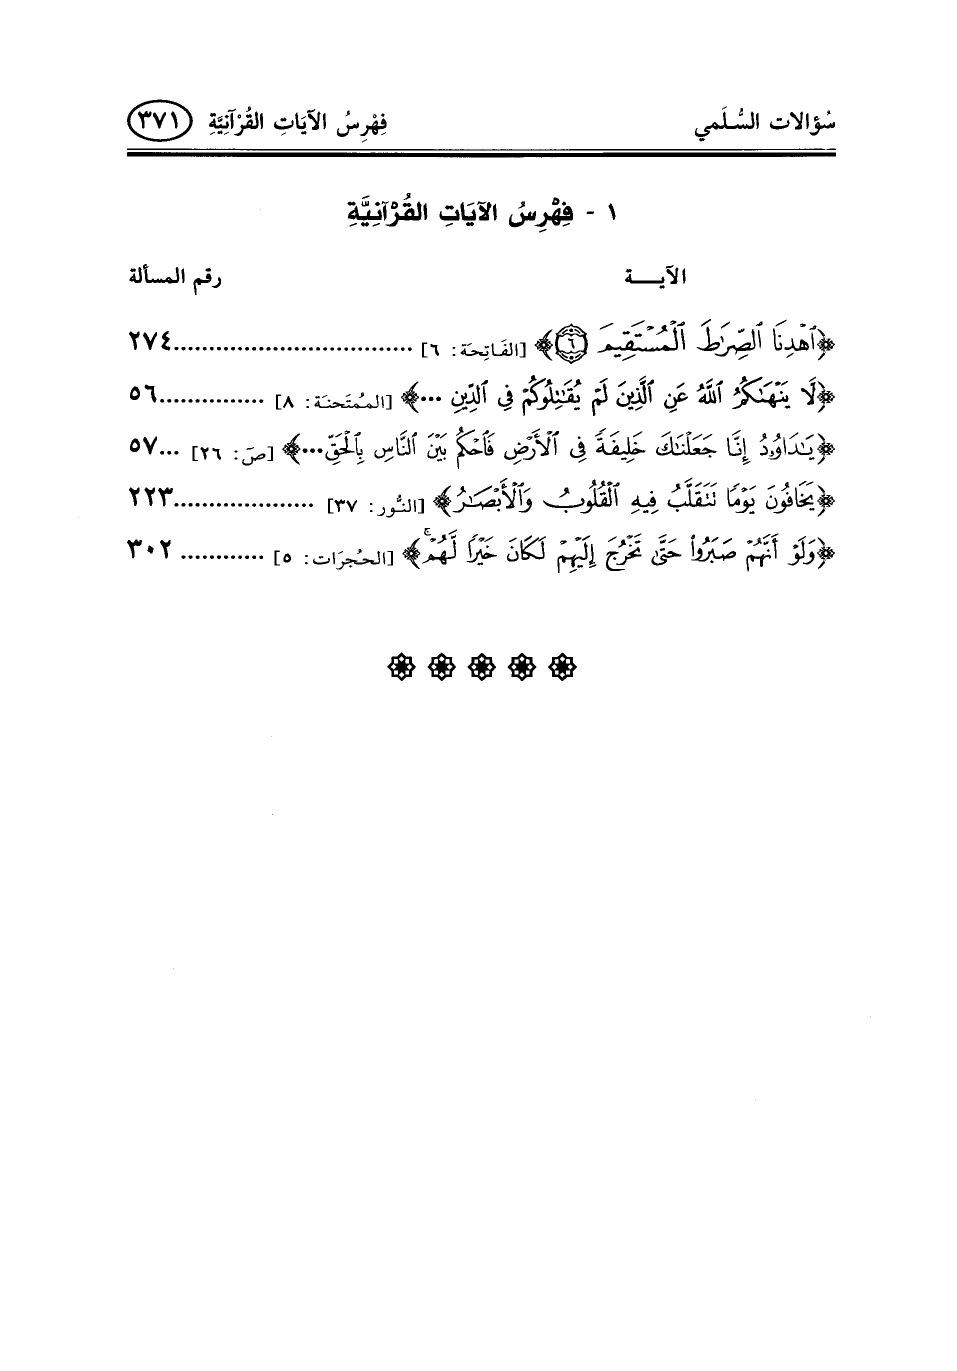 سُؤالات السُّلَمي فِهْرِسُ الآيَاتِ القُرْآنِيَّةِ ٣٧١
١ - فِهْرِسُ الآيَاتِ القُرْآنِيَّةِ
الآيـــة رقم المسألة
﴿ٱهْدِنَا ٱلصِّرَٰطَ ٱلْمُسْتَقِيمَ ٦﴾ [الفَاتِحَة: ٦] .................................. ٢٧٤
﴿لَّا يَنْهَىٰكُمُ ٱللَّهُ عَنِ ٱلَّذِينَ لَمْ يُقَٰتِلُوكُمْ فِى ٱلدِّينِ ...﴾ [المُمتَحنَة: ٨] ............... ٥٦
﴿يَٰدَاوُۥدُ إِنَّا جَعَلْنَٰكَ خَلِيفَةً فِى ٱلْأَرْضِ فَٱحْكُم بَيْنَ ٱلنَّاسِ بِٱلْحَقِّ...﴾ [صَ: ٢٦] ... ٥٧
﴿يَخَافُونَ يَوْمًا تَتَقَلَّبُ فِيهِ ٱلْقُلُوبُ وَٱلْأَبْصَٰرُ﴾ [النُّور: ٣٧] .................... ٢٢٣
﴿وَلَوْ أَنَّهُمْ صَبَرُوا۟ حَتَّىٰ تَخْرُجَ إِلَيْهِمْ لَكَانَ خَيْرًا لَّهُمْ ۚ﴾ [الحُجرَات: ٥] ............ ٣٠٢